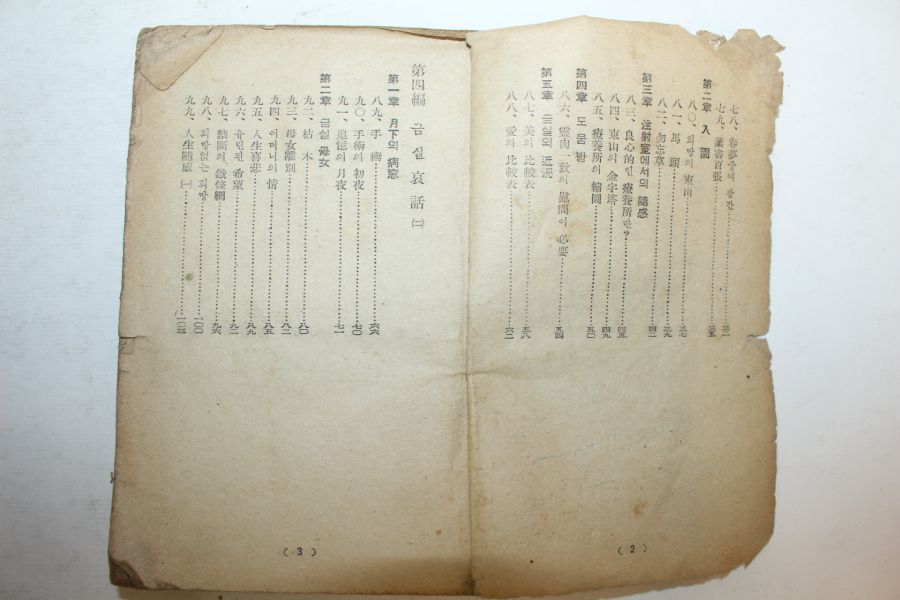 七八、春夢중에 잠간……三一
七九、葉書百張……三五
第二章 入園
八〇、희망의 東山……三七
八一、馬頭……三九
八二、勿忘草……四二
第三章 注射室에서의 隨感
八三、良心的인 療養所란?……四五
八四、東山의 金字塔……四九
八五、療養所의 縮圖……五〇
第四章 도움방
八六、靈肉一致의 慰問이 必要……五四
第五章 금실의 近況
八七、美의 比較表……五八
八八、愛의 比較表……六二
(2)
第四編 금실哀話 (二)
第一章 月下의 病窓
八九、手術……六六
九〇、手術의 初夜……七〇
九一、追憶의 月夜……七一
第二章 금실 母女
九二、枯木……八〇
九三、母女離別……八二
九四、어머니의 情……八五
九五、人生喜悲……八九
九六、유린된 希望……九二
九七、禁斷의 鐵條網……九六
九八、희망없는 희망……一〇〇
九九、人生隨感 (一)……一〇三
(3)